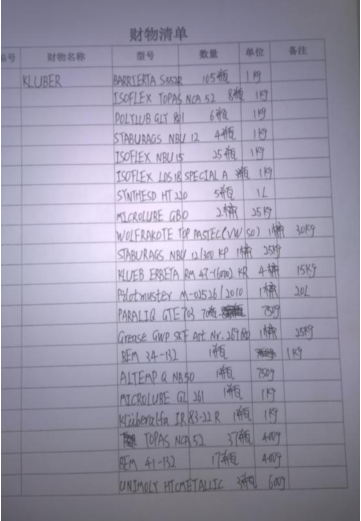 财物清单
号 财物名称 型号 数量 单位 备注
KLUBER BARRIERTA S552R 165瓶 1Kg
ISOFLEX TOPAS NCA 52 8瓶 1Kg
POLYLUB GLY 801 6瓶 1Kg
STABURAGS NBU 12 4瓶 1Kg
ISOFLEX NBU 15 25瓶 1Kg
ISOFLEX LDS 18 SPECIAL A 瓶 1Kg
SYNTHESO HT 220 5瓶 1L
MICROLUBE GB0 2桶 25Kg
WOLFRAKOTE TOP PASTE(VW 50) 1桶 30Kg
STABURAGS NBU 12/300 KP 1桶 25Kg
KLUEB ERBETA RM 47-1600 KR 4桶 15Kg
Pilotmuster M-02526/2010 1桶 20L
PARALIQ GTE 703 70瓶 750g
Grease GWP SKF Art Nr. 1桶 25Kg
BEM 34-132 1瓶 1Kg
ALTEMP Q NB50 1瓶 750g
MICROLUBE GL 261 1瓶 1Kg
Klüberalfa IR 83-22R 1瓶 1Kg
TOPAS NCA 52 37瓶 400g
BEM 41-132 17瓶 400g
UNIMOLY HTC METALLIC 3瓶 600g